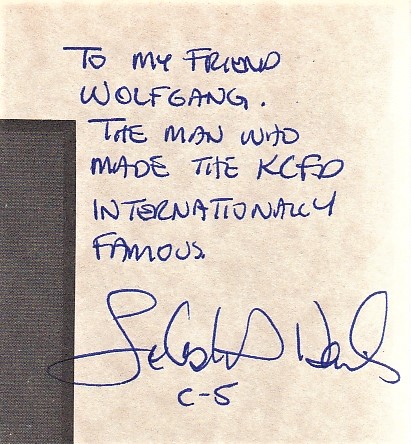 TO MY FRIEND
WOLFGANG.
THE MAN WHO
MADE THE KCFD
INTERNATIONALLY
FAMOUS.
C-5